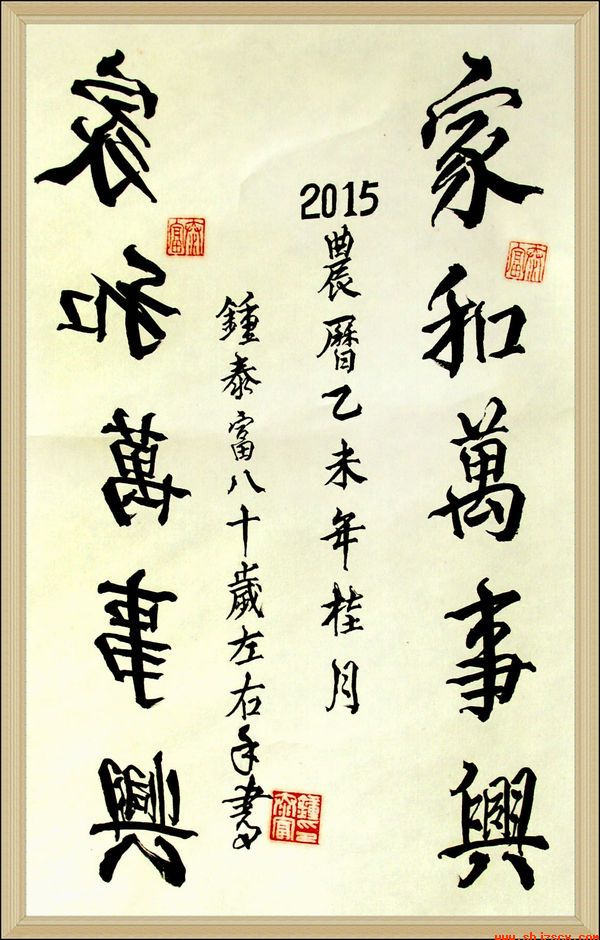 家和萬事興
泰富
2015
農曆乙未年桂月
鍾泰富八十歲左右手書
家和萬事興
泰富